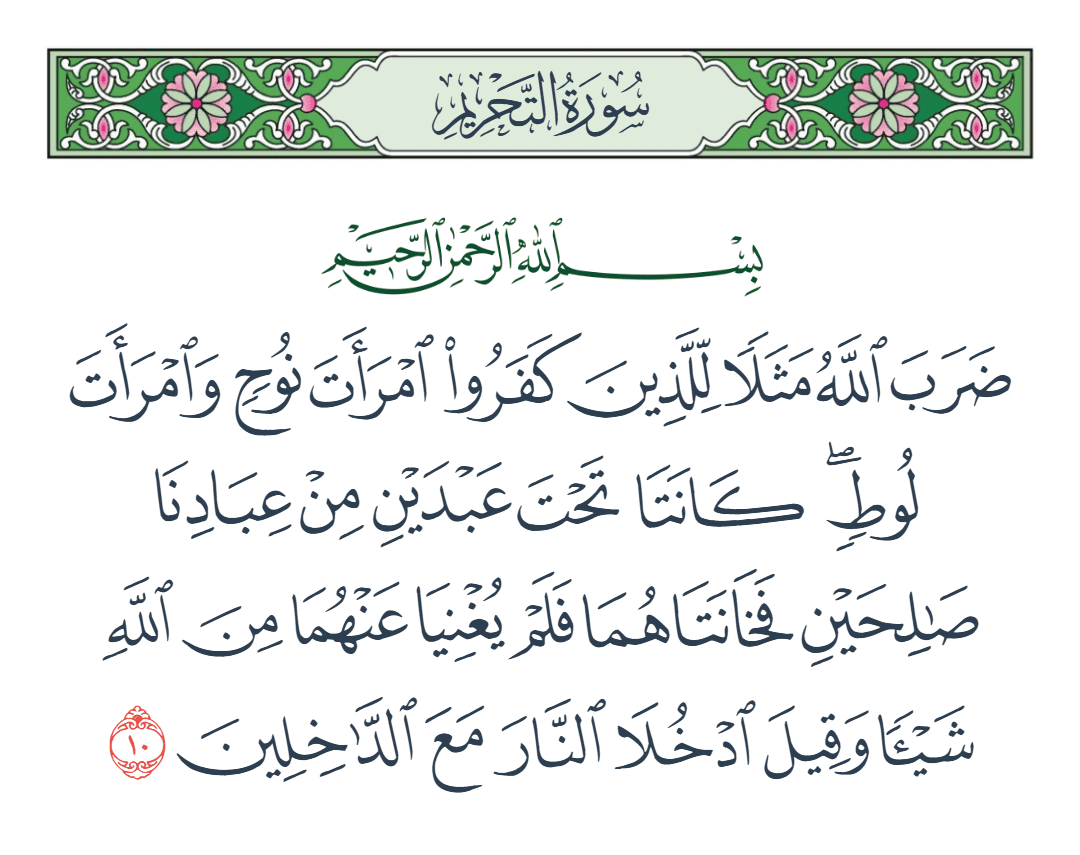 سُورَةُ التَّحْرِيمِ
بِسْمِ ٱللَّهِ ٱلرَّحْمَٰنِ ٱلرَّحِيمِ
ضَرَبَ ٱللَّهُ مَثَلًا لِّلَّذِينَ كَفَرُوا۟ ٱمْرَأَتَ نُوحٍ وَٱمْرَأَتَ
لُوطٍ ۖ كَانَتَا تَحْتَ عَبْدَيْنِ مِنْ عِبَادِنَا
صَٰلِحَيْنِ فَخَانَتَاهُمَا فَلَمْ يُغْنِيَا عَنْهُمَا مِنَ ٱللَّهِ
شَيْـًٔا وَقِيلَ ٱدْخُلَا ٱلنَّارَ مَعَ ٱلدَّٰخِلِينَ ١٠